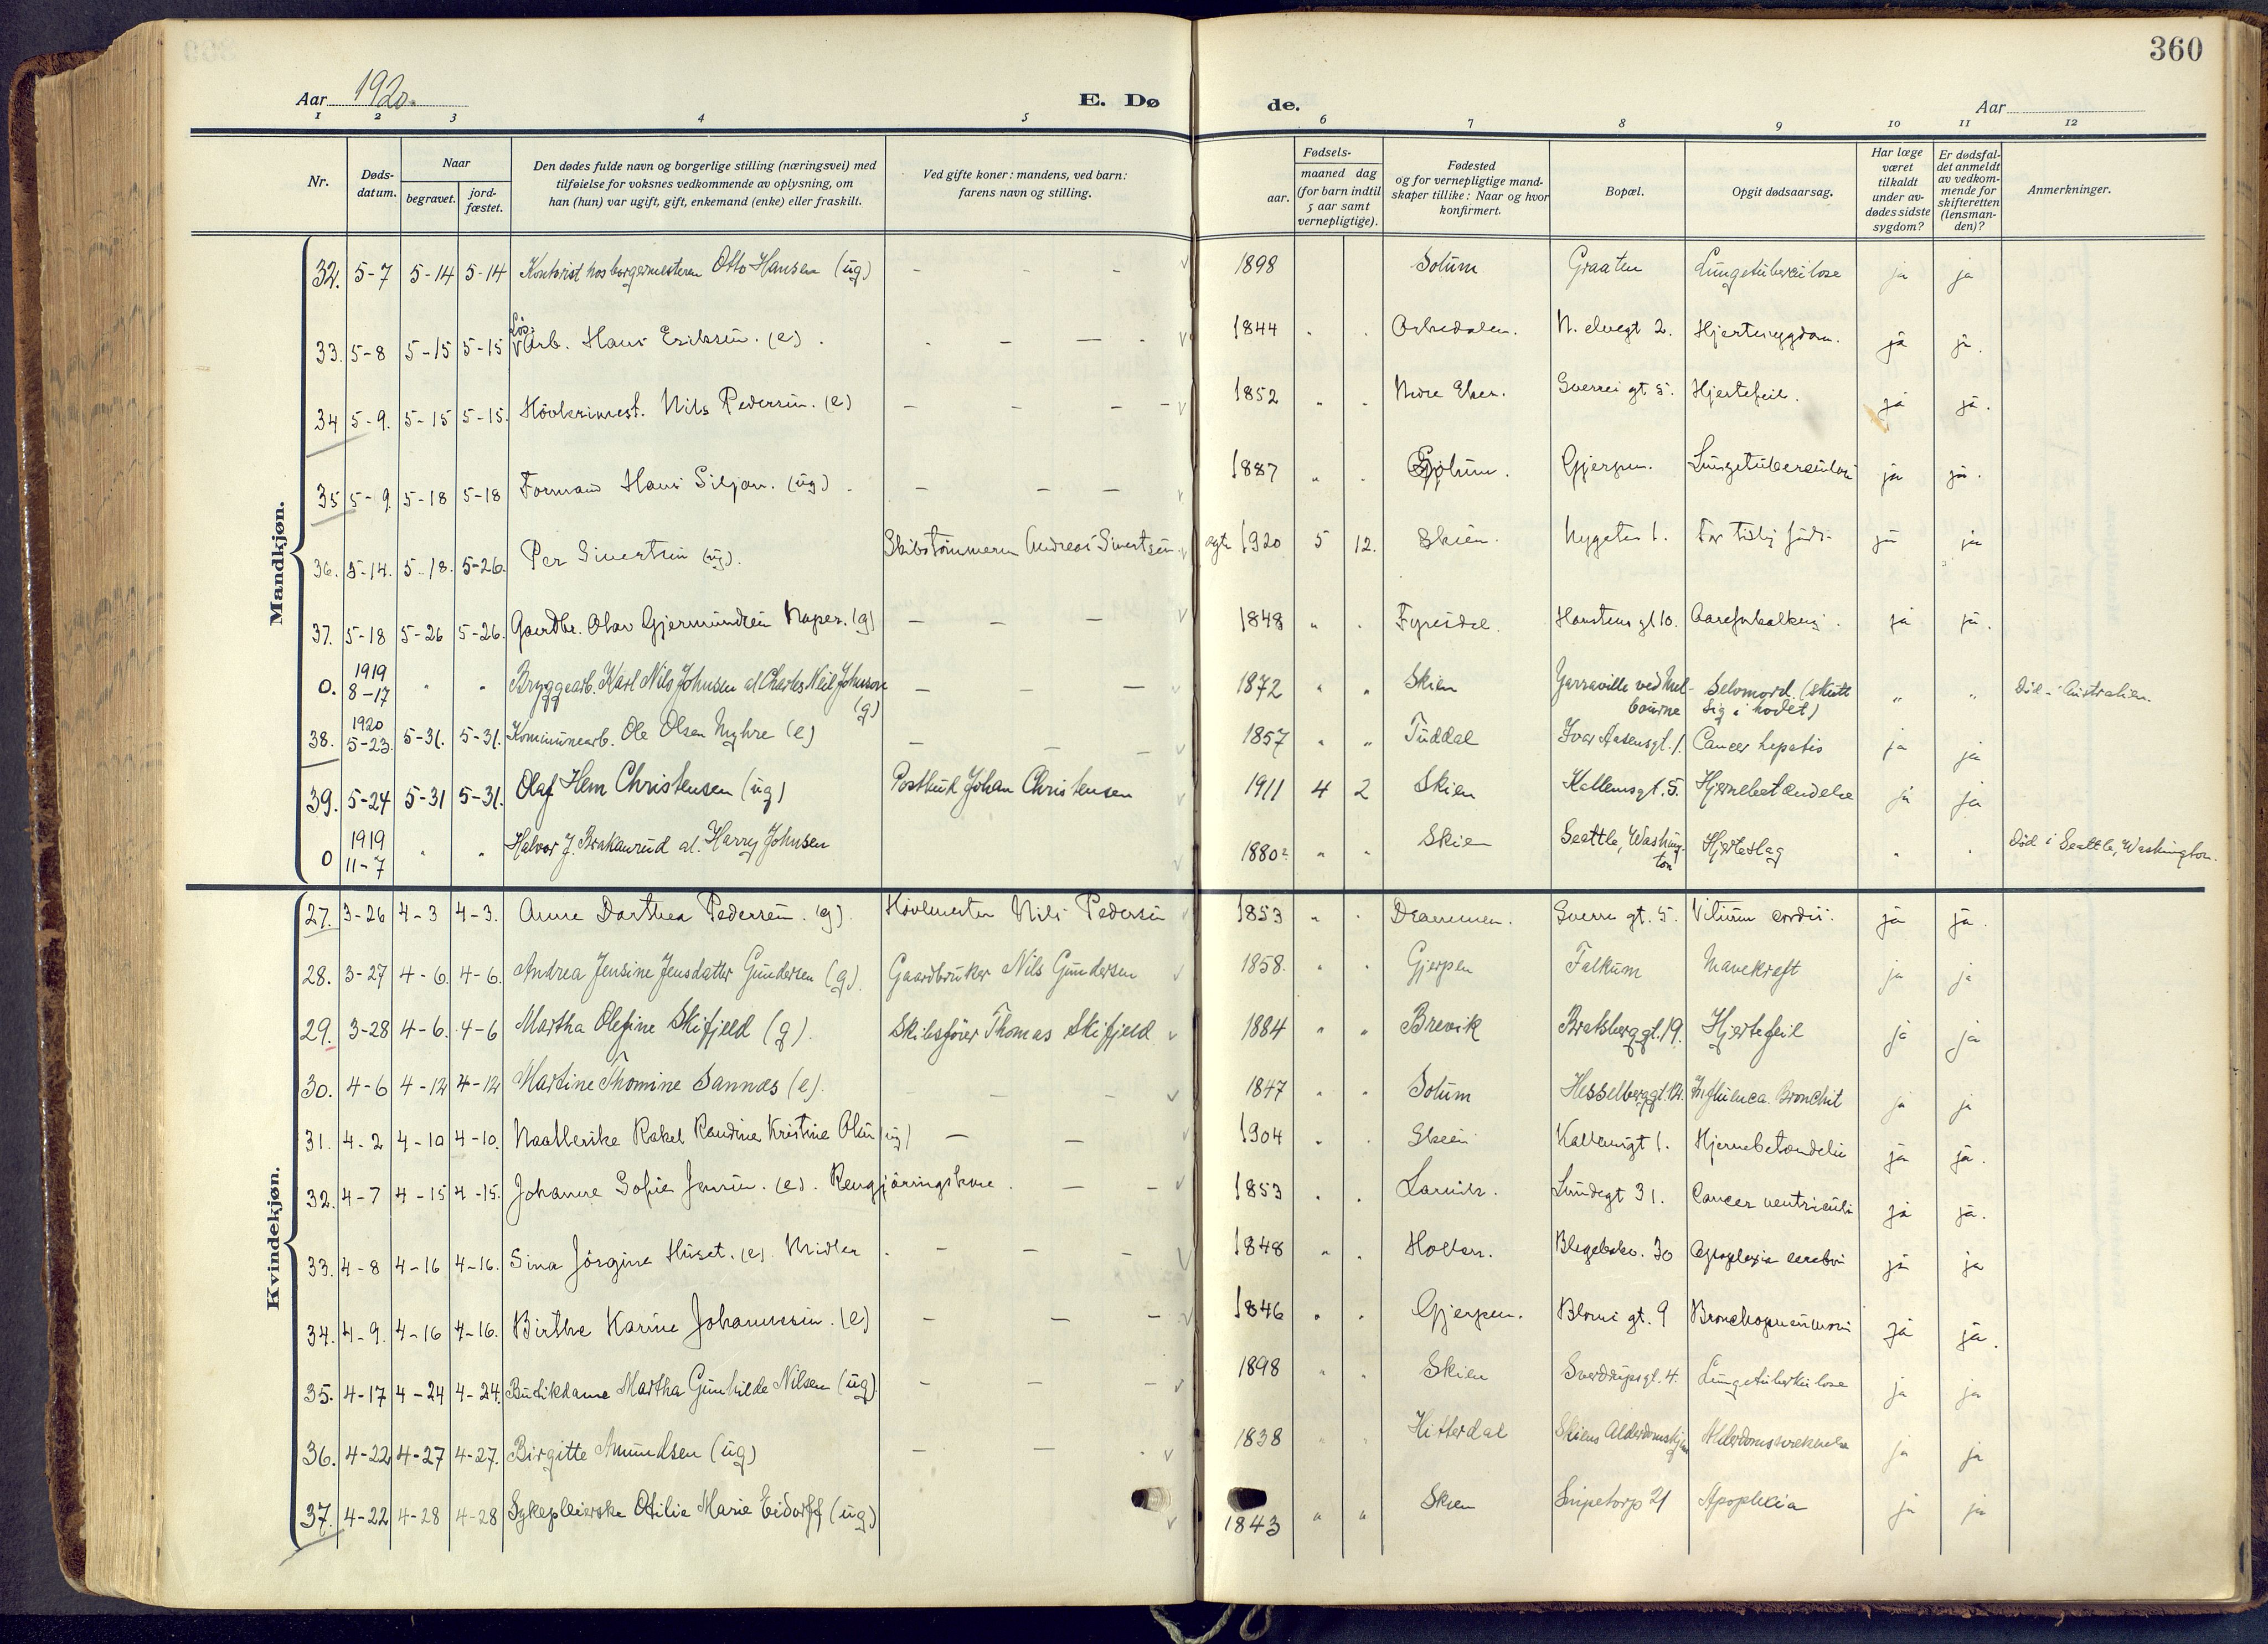 360
Aar 1920.
E. Dø de.
Aar
1 2 3 4 5 6 7 8 9 10 11 12
Nr.
Dødsdatum.
Naar
begravet.
jordfæstet.
Den dødes fulde navn og borgerlige stilling (næringsvei) med
tilføielse for voksnes vedkommende av oplysning, om
han (hun) var ugift, gift, enkemand (enke) eller fraskilt.
Ved gifte koner: mandens, ved barn:
farens navn og stilling.
Fødsels-
aar.
maaned dag
(for barn indtil
5 aar samt
vernepligtige).
Fødested
og for vernepligtige mand-
skaper tillike: Naar og hvor
konfirmert.
Bopæl.
Opgit dødsaarsag.
Har læge
været
tilkaldt
under av-
dødes sidste
sygdom?
Er dødsfal-
det anmeldt
av vedkom-
mende for
skifteretten
(lensman-
den)?
Anmerkninger.
Mandkjøn.
32. 5-7 5-14 5-14 Kontorist hos borgermesteren Otto Hansen (ug) - - - 1898 Solum Graaten Lungetuberkulose ja ja
33. 5-8 5-15 5-15 Løs-Arb. Hans Eriksen. (e). - - 1844 N. elvegt 2. Hjertesygdom. ja ja.
34 5-9. 5-15 5-15. Nils Pedersen. (e) - - - 1852 Nedre Eker. Sverres gt 5. Hjertefeil. ja ja.
35 5-9. 5-18 5-18 Formand Hans Siljan. (ug). - - - 1887 Solum. Gjerpen. Lungetuberkulose ja ja.
36. 5-14. 5-18. 5-26. Per Sivertsen (ug). Skibstømmerm Andreas Sivertsen. agte 1920 5 12. Skien. Nygaten 1. For tidlig født. ja ja
37. 5-18 5-26 5-26. Gaardbr. Olav Gjermundsen Naper. (g) - - - 1848 Fyresdal. Hanstens gt 10. Aareforkalkning. ja ja.
0. 1919 8-17 " " Bryggearb. Karl Nils Johnsen al Charles Neil Johnson (g) - - - 1872 " " Skien Yarraville ved Melbourne Selvmord. (skutt sig i hodet) " " Død i Australien.
38. 1920 5-23. 5-31. 5-31. Kommunearb. Ole Olsen Myhre (e) - - - 1857 " " Tuddal Ivar Aasensgt. 1. Cancer hepatis ja ja
39. 5-24 5-31 5-31. Olaf Hem Christensen (ug) Postbud Johan Christensen 1911 4 2 Skien Kallemsgt. 5. Hjernebetændelse ja ja
0 1919 11-7 " " Halvor J. Brokanrud al. Harry Johnsen 1880? " " Skien Seattle, Washington Hjerteslag " " Død i Seattle, Washington.
Kvindekjøn.
27. 3-26 4-3 4-3. Anne Dorthea Pedersen. (g). Høvlmester Nils Pedersen 1853 " " Drammen. Sverres gt. 5. Vitium cordis. ja ja.
28. 3-27 4-6. 4-6. Andrea Jensine Jensdatter Gundersen (g). Gaardbruker Nils Gundersen 1858. " " Gjerpen Falkum Mavekreft ja ja
29. 3-28 4-6. 4-6 Martha Olefine Skifjeld (g). Skibsfører Thomas Skifjeld 1884 " " Brevik Bratsberggt. 19. Hjertefeil ja ja
30. 4-6 4-12 4-12 Martine Thomine Sannæs (e). - - - 1847 " " Solum Hesselberggt. 12. Influenca. Bronchit ja ja
31. 4-2 4-10 4-10. Rakel Randine Kristine Olsen (ug) - - 1904 " Skien Kallemsgt 1. Hjernebetændelse ja ja.
32. 4-7 4-15 4-15. Johanne Sofie Jensen. (e). Rengjøringskone. - - 1853 " " Larvik. Lundegt 31. Cancer ventriculi ja ja.
33. 4-8 4-16 4-16. Sina Jørgine Huset. (e). - - - 1848 " " Holden. 30 Apoplexia cerebri ja ja
34. 4-9. 4-16 4-16. Birthe Karine Johannessen. (e) - - - 1846 " " Gjerpen. gt. 9 Bronchopneumoni ja ja.
35. 4-17 4-24 4-24. Butikdame Martha Gunhilde Nilsen (ug) - - - 1898 " " Skien Sverdrupsgt. 4. Lungetuberkulose ja ja
36. 4-22 4-27 4-27. Birgitte Amundsen (ug) - - - 1838 " " Hitterdal Skiens Alderdomshjem Alderdomssvækkelse ja ja
37. 4-22 4-28 4-28 Sykepleierske Otilie Marie Eidorff (ug) 1843 " " Skien Snipetorp 21 Apoplexia ja ja